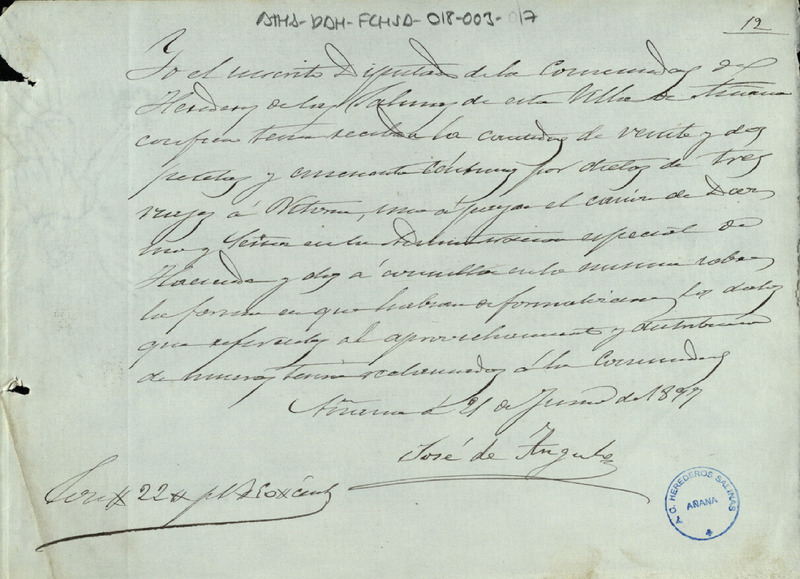 ATHA-DAH-FCHSA-018-003-017
12
Yo el inscrito Diputado de la Comunidad de
Herederos de las Salinas de esta Villa de Añana
confieso tener recibida la cantidad de veinte y dos
pesetas y cincuenta céntimos por dietas de tres
viajes á Vitoria, uno á pagar el cánon de
y en la Administracion especial de
Hacienda y dos á consultar en la misma sobre
la forma en que habian de formalizarse los datos
que referentes al aprovechamiento y distribucion
de tenia reclamados á la Comunidad
Añana á 21 de Junio de 1897
José de Angulo
Son # 22 # pts 50 # cents
A C. HEREDEROS SALINAS
AÑANA